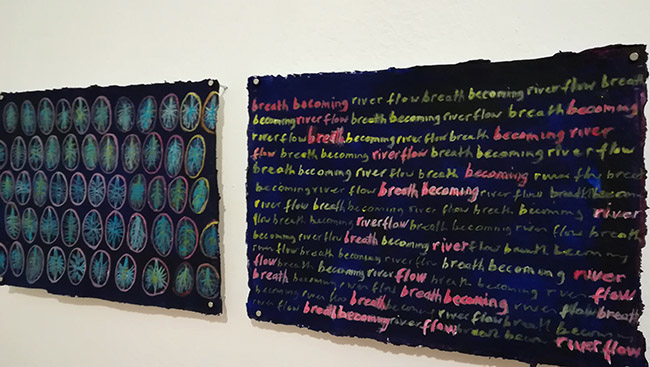 breath becoming river flow breath becoming river flow breath
becoming river flow breath becoming river flow breath becoming
river flow breath becoming river flow breath becoming river
flow breath becoming river flow breath becoming river flow
breath becoming river flow breath becoming river flow breath
becoming river flow breath becoming river flow breath becoming
river flow breath becoming river flow breath becoming river
flow breath becoming river flow breath becoming river flow
breath becoming river flow breath becoming river flow breath becoming
river flow breath becoming river flow breath becoming river
flow breath becoming river flow breath becoming river
breath becoming river flow breath becoming river flow
becoming river flow breath becoming river flow breath
river flow breath becoming river flow breath becoming river flow